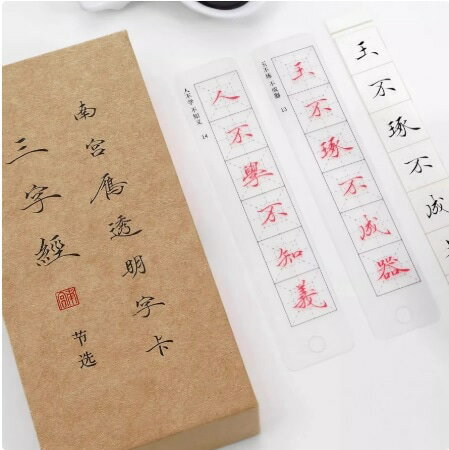 南宫鴈透明字卡
三字經
节选
人不学 不知义 14
人不學不知義
玉不琢 不成器 13
玉不琢不成器
玉不琢不成